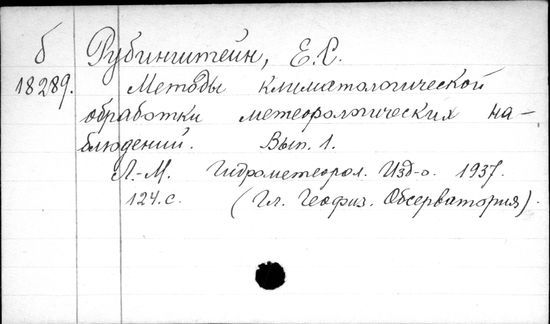 б Рубинштейн, Е.С.
18289. Методы климатологической
обработки метеорологических на-
блюдений. Вып. 1.
Л.-М. Гидрометеорол. Изд-о. 1937.
124 с. (Гл. Геофиз. Обсерватория).